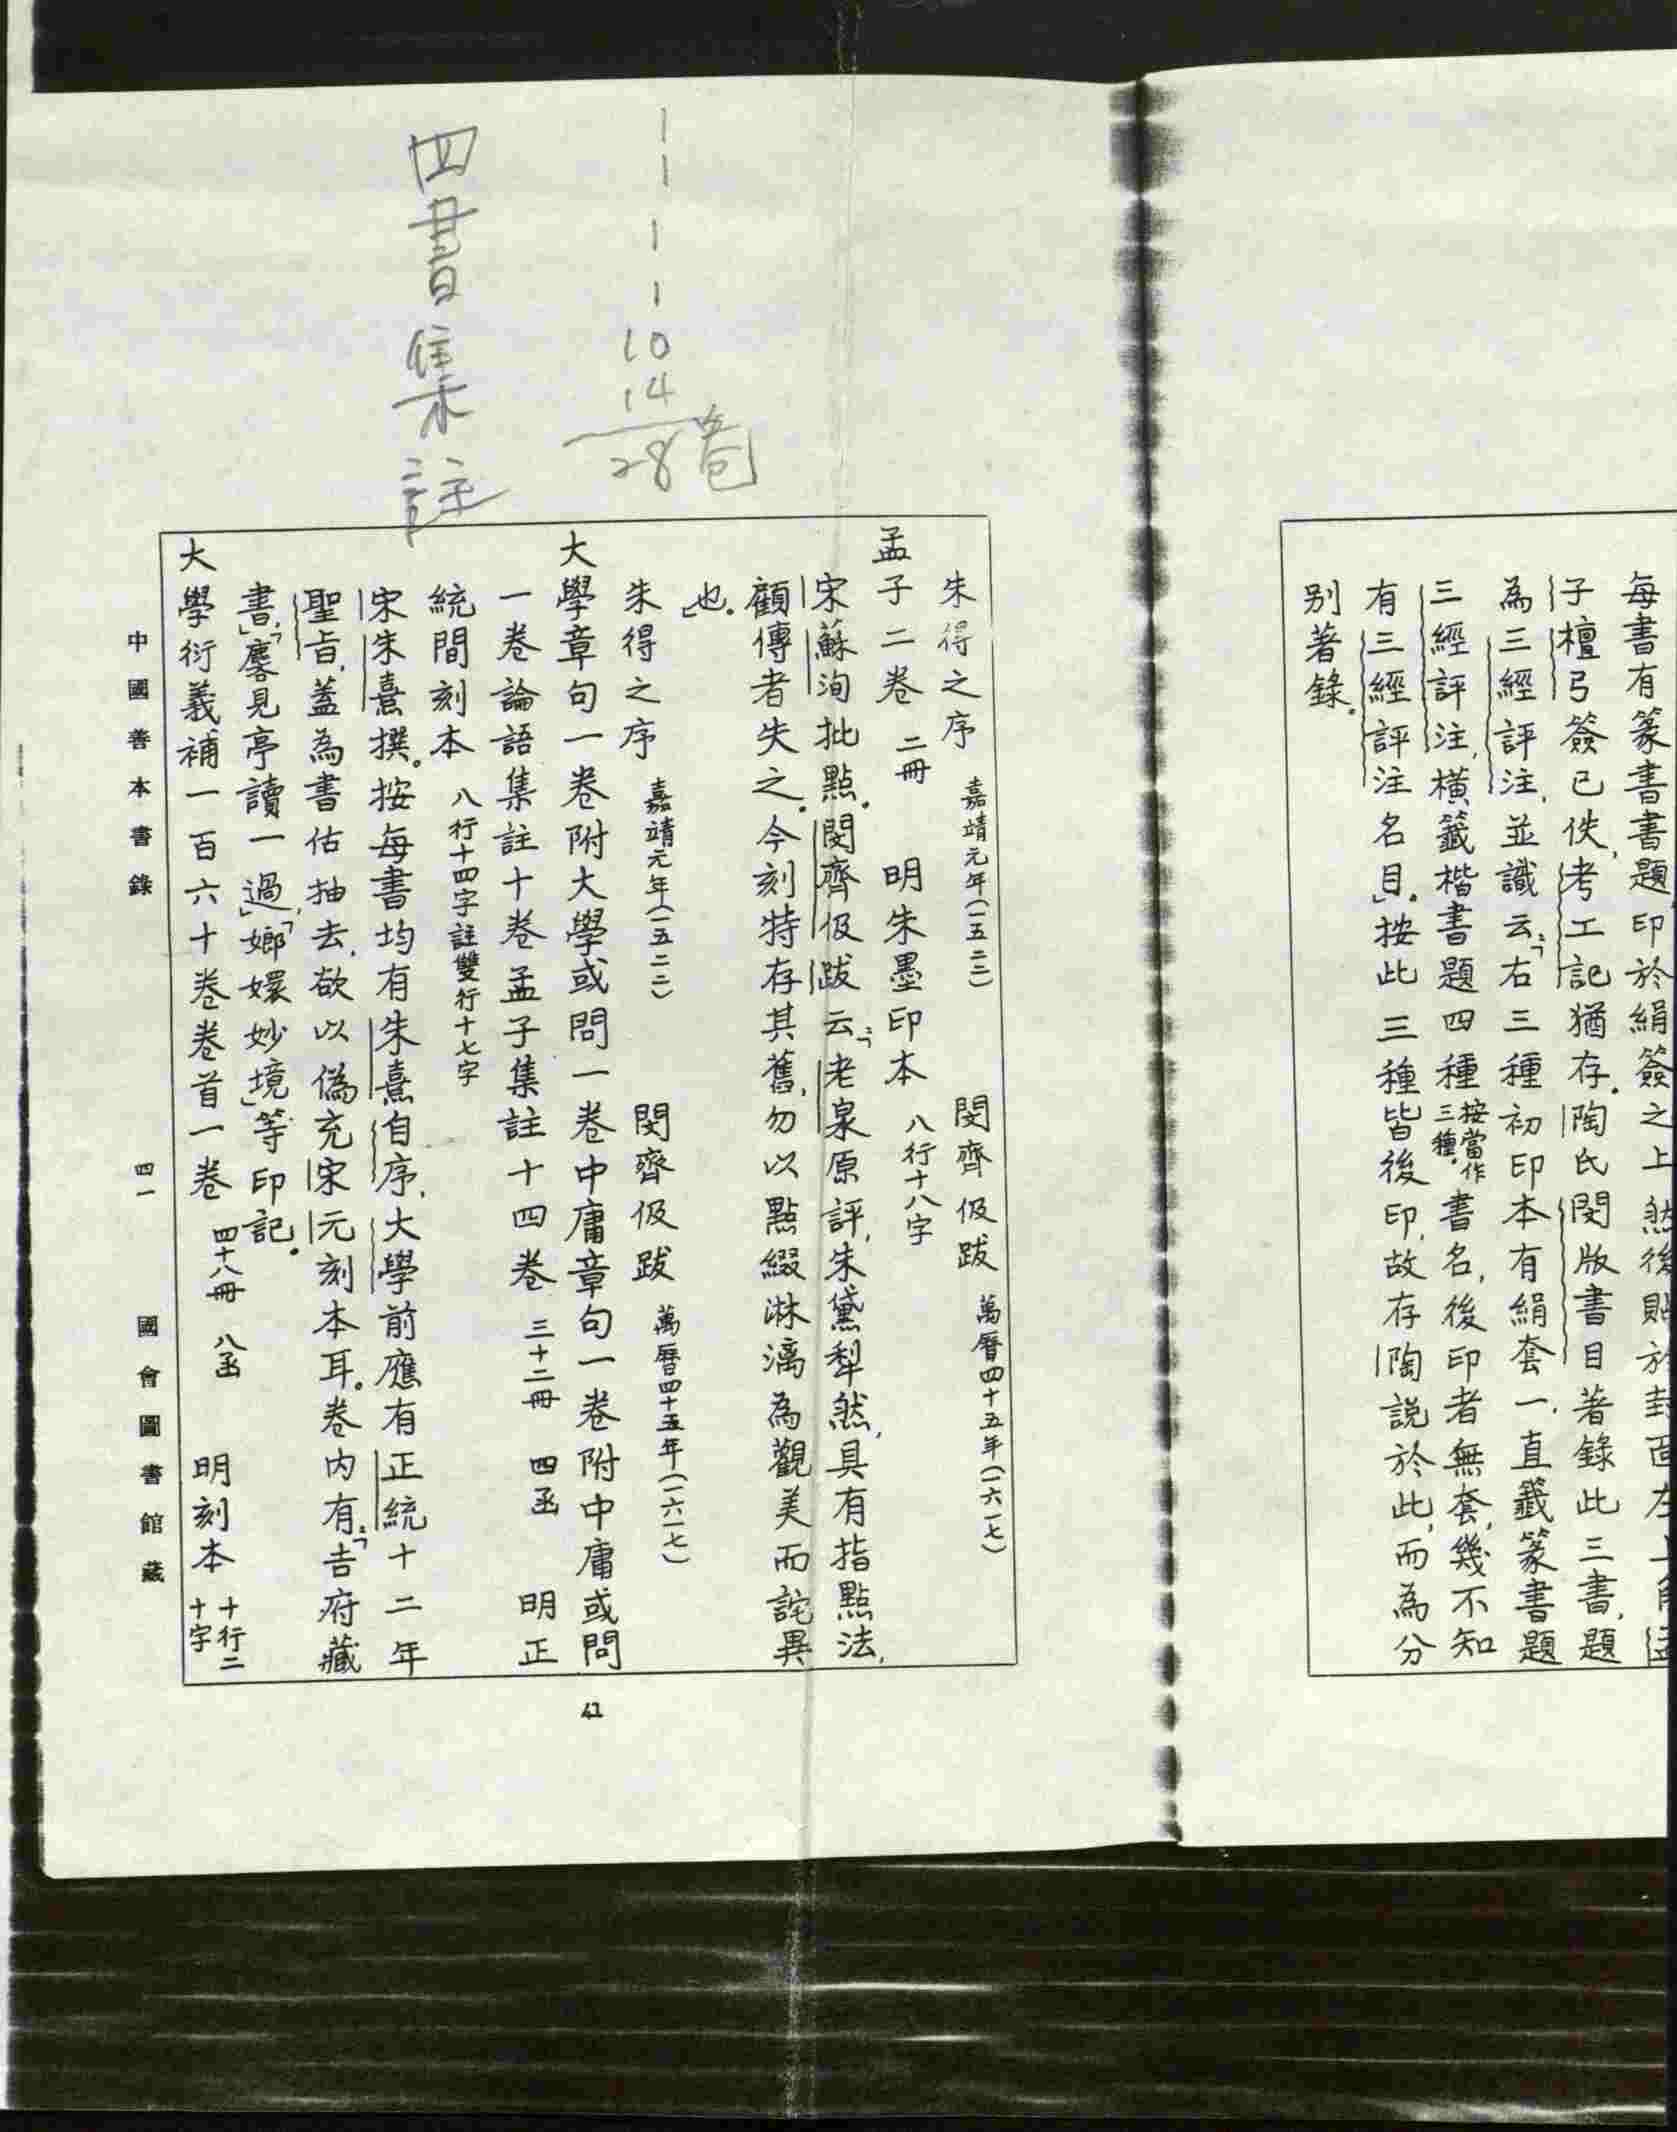 每書有篆書書題，印於絹簽之上，然後貼於封面左
子檀弓簽已佚，考工記猶存。陶氏閔版書目著錄此三書，題
為三經評注，並識云：「右三種初印本有絹套一，直籤篆書題
三經評注，橫籤楷書題四種按當作三種，書名，後印者無套，幾不知
有三經評注名目。」按此三種皆後印，故存陶説於此，而為分
别著錄。
朱得之序 嘉靖元年（一五二二） 閔齊伋跋 萬曆四十五年（一六一七）
孟子二卷 二冊 明朱墨印本 八行十八字
宋蘇洵批點。閔齊伋跋云：「老泉原評，朱黛犁然，具有指點法，
顧傳者失之。今刻特存其舊，勿以點綴淋漓為觀美而詫異
也。」
朱得之序 嘉靖元年（一五二二） 閔齊伋跋 萬曆四十五年（一六一七）
大學章句一卷附大學或問一卷中庸章句一卷附中庸或問
一卷論語集註十卷孟子集註十四卷 三十二冊 四函 明正
統間刻本 八行十四字註雙行十七字
宋朱熹撰。按每書均有朱熹自序，大學前應有正統十二年
聖旨，蓋為書估抽去，欲以偽充宋元刻本耳。卷内有：「吉府藏
書」，「麐見亭讀一過」，「嫏嬛妙境」等印記。
大學衍義補一百六十卷卷首一卷 四十八冊 八函 明刻本 十行二十字
中國善本書錄 四一 國會圖書館藏
41
1
1
1
1
10
14
28卷
四書集註